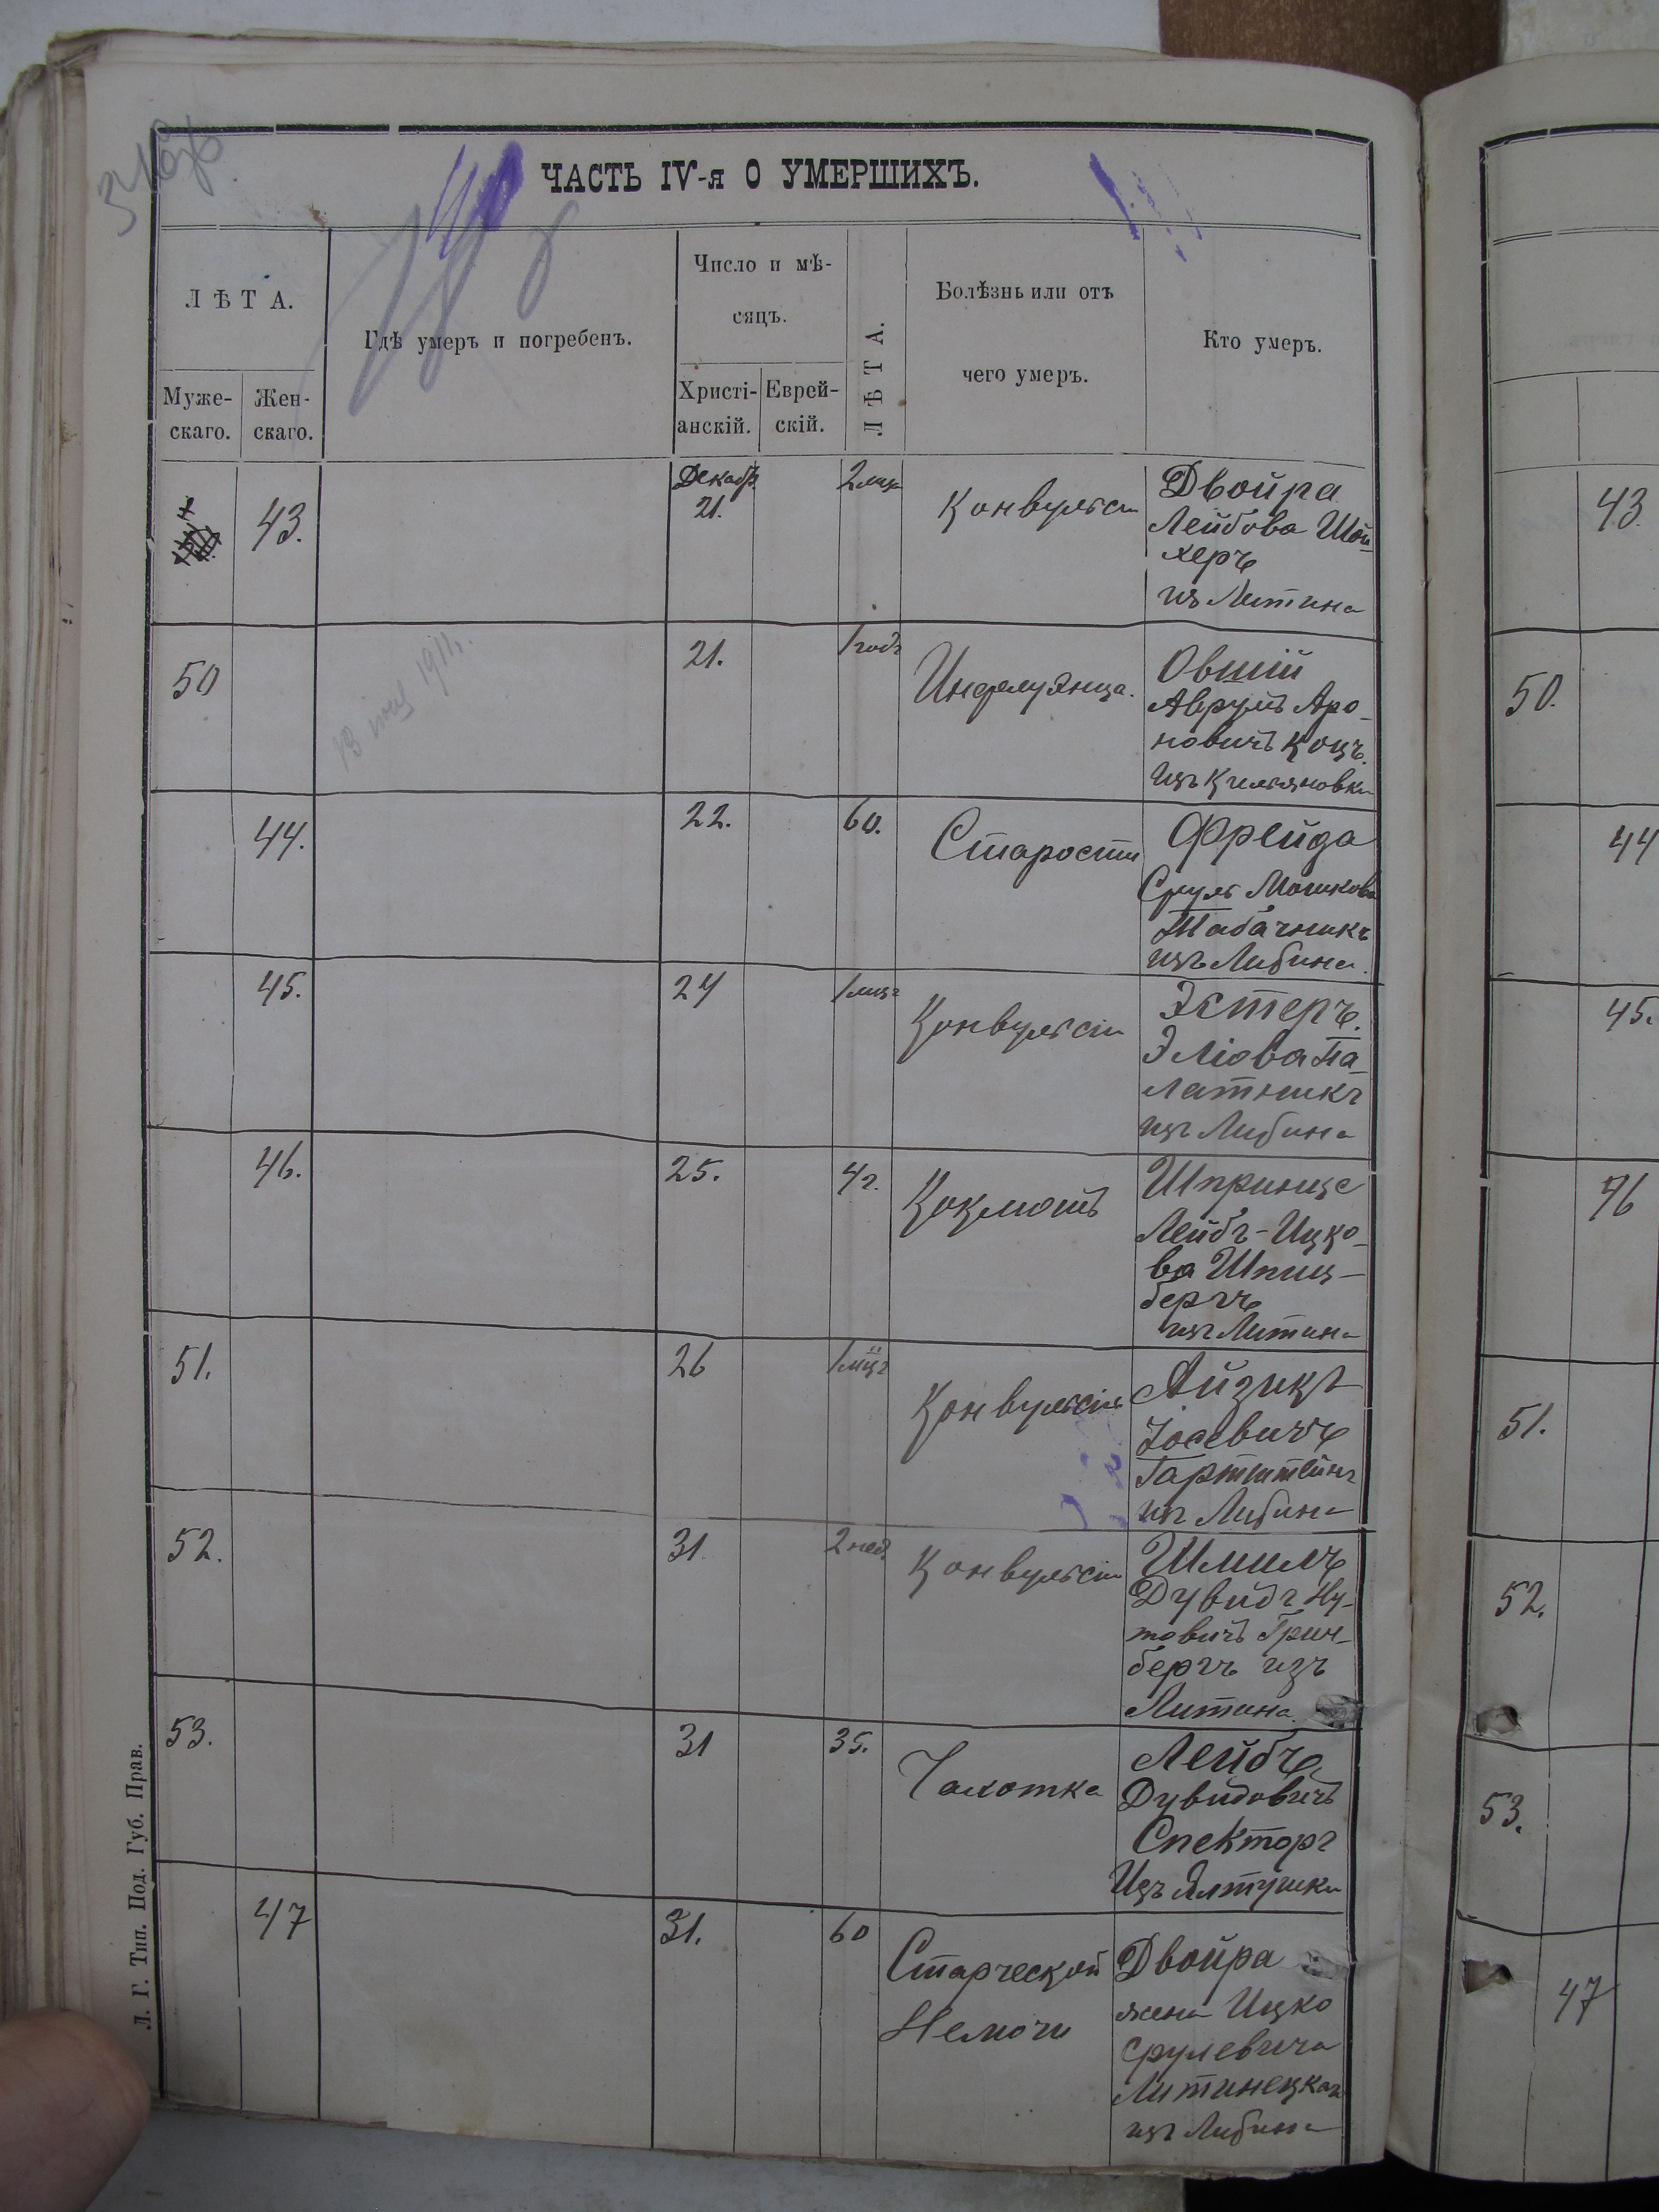 ЧАСТЬ IV-я О УМЕРШИХЪ.
ЛѢТА.
Муже-
скаго.
Жен-
скаго.
Гдѣ умеръ и погребенъ.
Число и мѣ-
сяцъ.
Христі-
анскій.
Еврей-
скій.
ЛѢТА.
Болѣзнь или отъ
чего умеръ.
Кто умеръ.
43.
Декабр.
21.
2 мца
Конвульсіи
Двойра
Лейбова Шой-
херъ
из Литина
43.
50
13 1911.
21.
1 годъ
Инфлуэнца.
Овшій
Аврумъ Аро-
новичъ Коцъ.
Изъ
50.
44.
22.
60.
Старости
Фрейда
Сруль Мошкова
Табачникъ
изъ Литина.
44
45.
24
1 мцъ
Конвульсіи
Эстеръ.
Эліова Па-
латникъ
изъ Литина
45.
46.
25.
4 г.
Коклюшъ
Шпринце
Лейбъ-Ицко-
ва Шпиц-
бергъ
изъ Литина
46
51.
26
1 мцъ
Конвульсіи
Айзикъ
Іосевичъ
Гартштейнъ
из Литина
51.
52.
31
2 нед.
Конвульсіи
Шмилъ
Дувидъ Ну-
товичъ Грин-
бергъ изъ
Литина.
52.
53.
31
35.
Чахотка
Лейбъ
Дувидовичъ
Спекторъ
Изъ Ялтушки
53.
47
31.
60
Старческой
Немочи
Двойра
жена Ицко
Срулевича
Литинецкая
изъ Литина
47
Л. Г. Тип. Под. Губ. Прав.